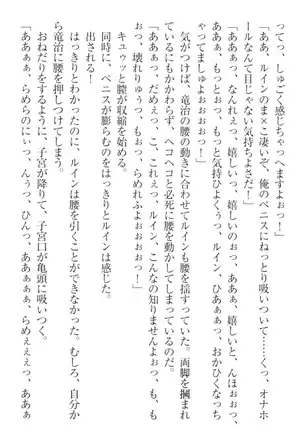 って、しゅごく感じちゃっへますよぉっ！」
「ああ、ルインのま×こ凄いぞ、俺のペニスにねっとり吸いついて……くっ、オナホ
ールなんて目じゃない気持ちよさだ！」
「あぁあっ、なんれぇっ、嬉しいっ、嬉しいのぉっ、ああぁ、嬉しいと、んほぉぉっ、
もっと、あぁ、もっと、もっと気持ひよくぅっ、ルイン、ひあぁぁっ、おかひくなっち
ゃってましゅよぉぉぉぉっ！」
気がつけば、竜治の腰の動きに合わせてルインも腰を揺すっていた。両脚を掴まれて
いるにもかかわらず、ヘコヘコと必死に腰を動かしてしまっているのだ。
「ああぁっ、だめぇっ、こ、これぇっ、ルイン、こんなの知りませんよぉっ、も、も
ぉっ、壊れりゅうっ、もぉっ、らめれふよぉぉぉぉっ！」
キュウッと膣が収縮を始める。
同時に、ペニスが膨らむのをはっきりとルインは感じた。
出される！
はっきりとわかったのに、ルインは腰を引くことができなかった。むしろ、自分か
ら竜治に腰を押しつけてしまう。
おねだりをするように、子宮が降りて、子宮口が亀頭に吸いつく。
「ああぁぁ、らめらのにぃ、んぅっ、ひんっ、ああぁぁっ、らめぇぇぇっ、ああぁ